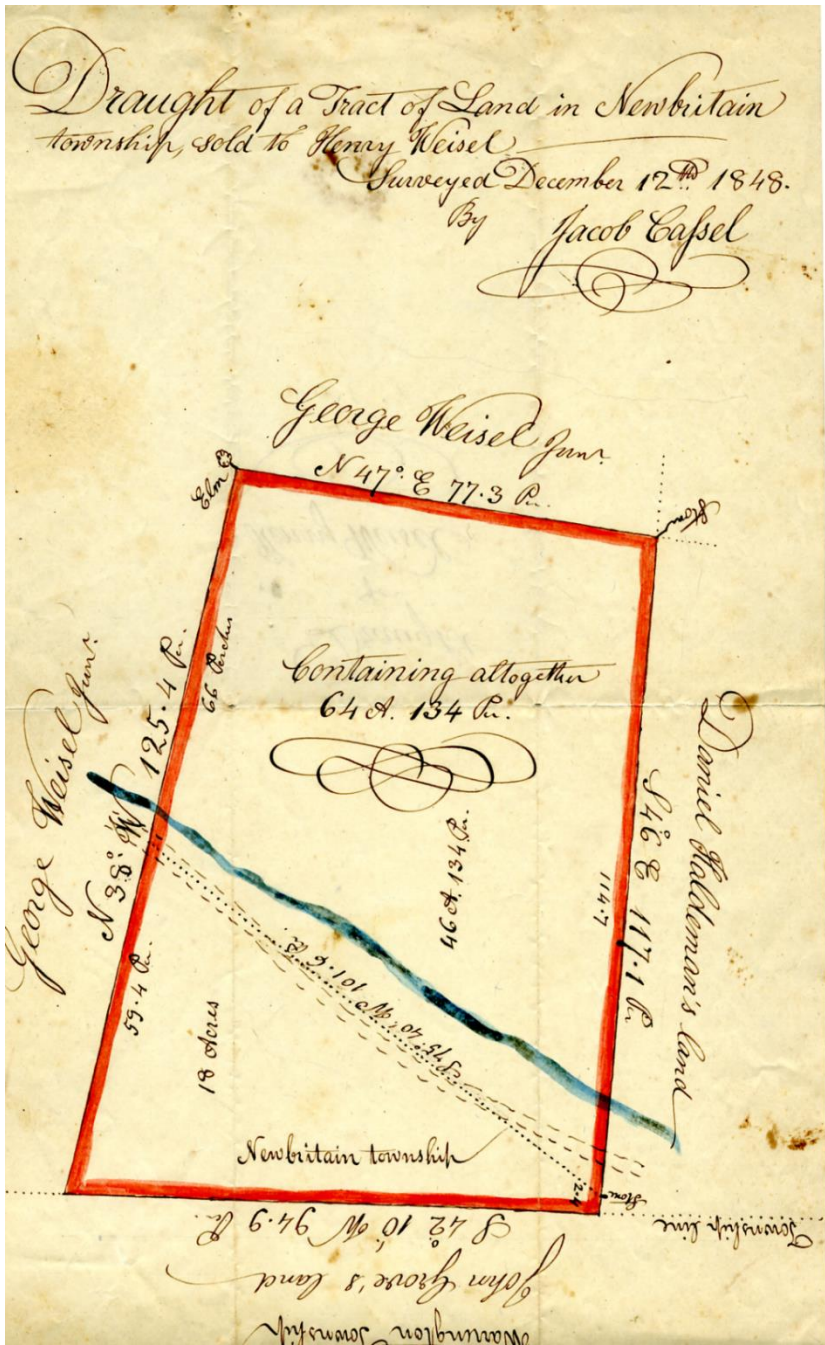 Draught of a Tract of Land in Newbritain
township, sold to Henry Weisel
Surveyed December 12th 1848.
By Jacob Cassel
George Weisel Junr.
N 47° E 77.3 Pr.
Elm
Stone
George Weisel Junr.
N 38° W 125.4 Pr.
66 Perches
59.4 Pr.
Containing altogether
64 A. 134 Pr.
46 A. 134 Pr.
Daniel Haldeman's land
S 46° E 117.1 Pr
114.7
S 75° 40' W 101.6 Pr.
18 Acres
Newbritain township
2.4
Stone
Township line
S 42° 10' W 94.9 Pr.
John Grove's land
Warrington Township